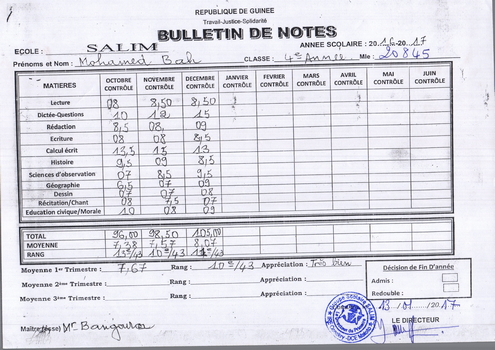 REPUBLIQUE DE GUINEE
Travail-Justice-Solidarité
BULLETIN DE NOTES
ECOLE : SALIM ANNEE SCOLAIRE : 2016-2017
Prénoms et Nom : Mohamed Bah CLASSE : 4e Année Mle : 20845
MATIERES OCTOBRE CONTRÔLE NOVEMBRE CONTRÔLE DECEMBRE CONTRÔLE JANVIER CONTRÔLE FEVRIER CONTRÔLE MARS CONTRÔLE AVRIL CONTRÔLE MAI CONTRÔLE JUIN CONTRÔLE
Lecture 08 8,50 8,50
Dictée-Questions 10 12 15
Rédaction 8,5 08 09
Ecriture 08 08 8,5
Calcul écrit 13,5 15 13
Histoire 9,5 09 8,5
Sciences d'observation 07 8,5 9,5
Géographie 6,5 07 09
Dessin 07 07 08
Récitation/Chant 08 7,5 07
Education civique/Morale 10 08 09
TOTAL 96,00 98,50 105,00
MOYENNE 7,38 7,57 8,07
RANG 10e/43
Moyenne 1er Trimestre : 7,67 Rang : 10e/43 Appréciation : Très bien
Moyenne 2ème Trimestre : Rang : Appréciation :
Moyenne 3ème Trimestre : Rang : Appréciation :
Décision de Fin D'année
Admis :
Redouble :
13 01 2017
Maître(sse) Mr Bangoura
LE DIRECTEUR